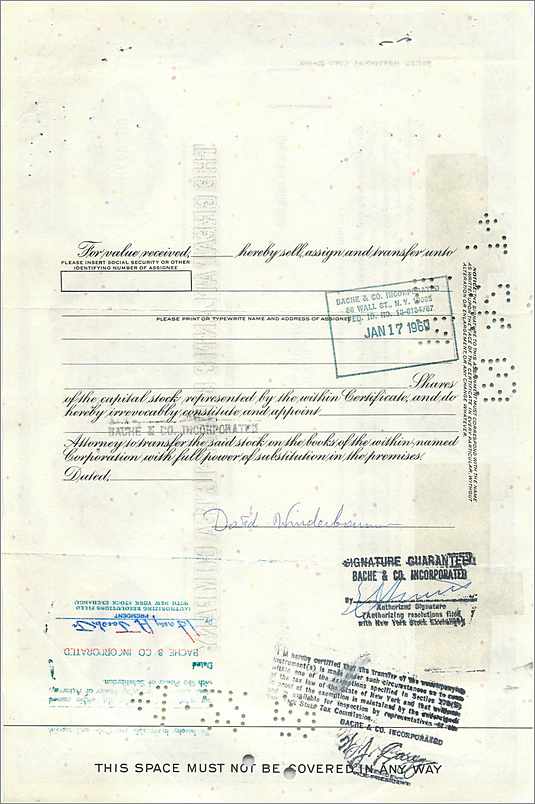 For value received, ______ hereby sell, assign and transfer unto
PLEASE INSERT SOCIAL SECURITY OR OTHER
IDENTIFYING NUMBER OF ASSIGNEE
BACHE & CO. INCORPORATED
WALL ST. N.Y.
FED. ID. NO.
JAN 17 1967
PLEASE PRINT OR TYPEWRITE NAME AND ADDRESS OF ASSIGNEE
NOTICE: THE SIGNATURE TO THIS ASSIGNMENT MUST CORRESPOND WITH THE NAME
AS WRITTEN UPON THE FACE OF THE CERTIFICATE IN EVERY PARTICULAR, WITHOUT
ALTERATION OR ENLARGEMENT OR ANY CHANGE WHATEVER.
Shares
of the capital stock represented by the within Certificate, and do
hereby irrevocably constitute and appoint
BACHE & CO. INCORPORATED
Attorney to transfer the said stock on the books of the within named
Corporation with full power of substitution in the premises.
Dated,
David
SIGNATURE GUARANTEED
BACHE & CO. INCORPORATED
By
Authorized Signature
(Authorizing resolutions filed
with New York Stock Exchange)
(AUTHORIZING RESOLUTIONS FILED
WITH NEW YORK STOCK EXCHANGE)
PRESIDENT
By
BACHE & CO INCORPORATED
Dated
I hereby certified that the transfer of the
instrument(s) is made under such circumstances as to come
within one of the exemptions specified in Section 270(5)
of the tax law of the State of New York and that
proof of the exemption is maintained by the
and is available for inspection by representatives of
State Tax Commission.
BACHE & CO. INCORPORATED
VICE-PRESIDENT
THIS SPACE MUST NOT BE COVERED IN ANY WAY